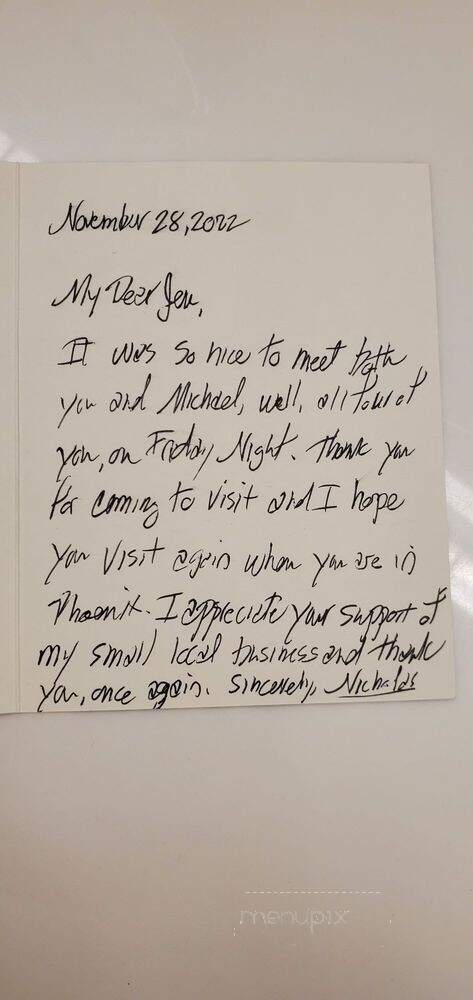 November 28, 2022
My Dear Jen,
It was so nice to meet both
you and Michael, well, all four of
you, on Friday Night. Thank you
for coming to visit and I hope
you visit again when you are in
Phoenix. I appreciate your support of
my small local business and thank
you, once again. Sincerely, Nicholas
menupix